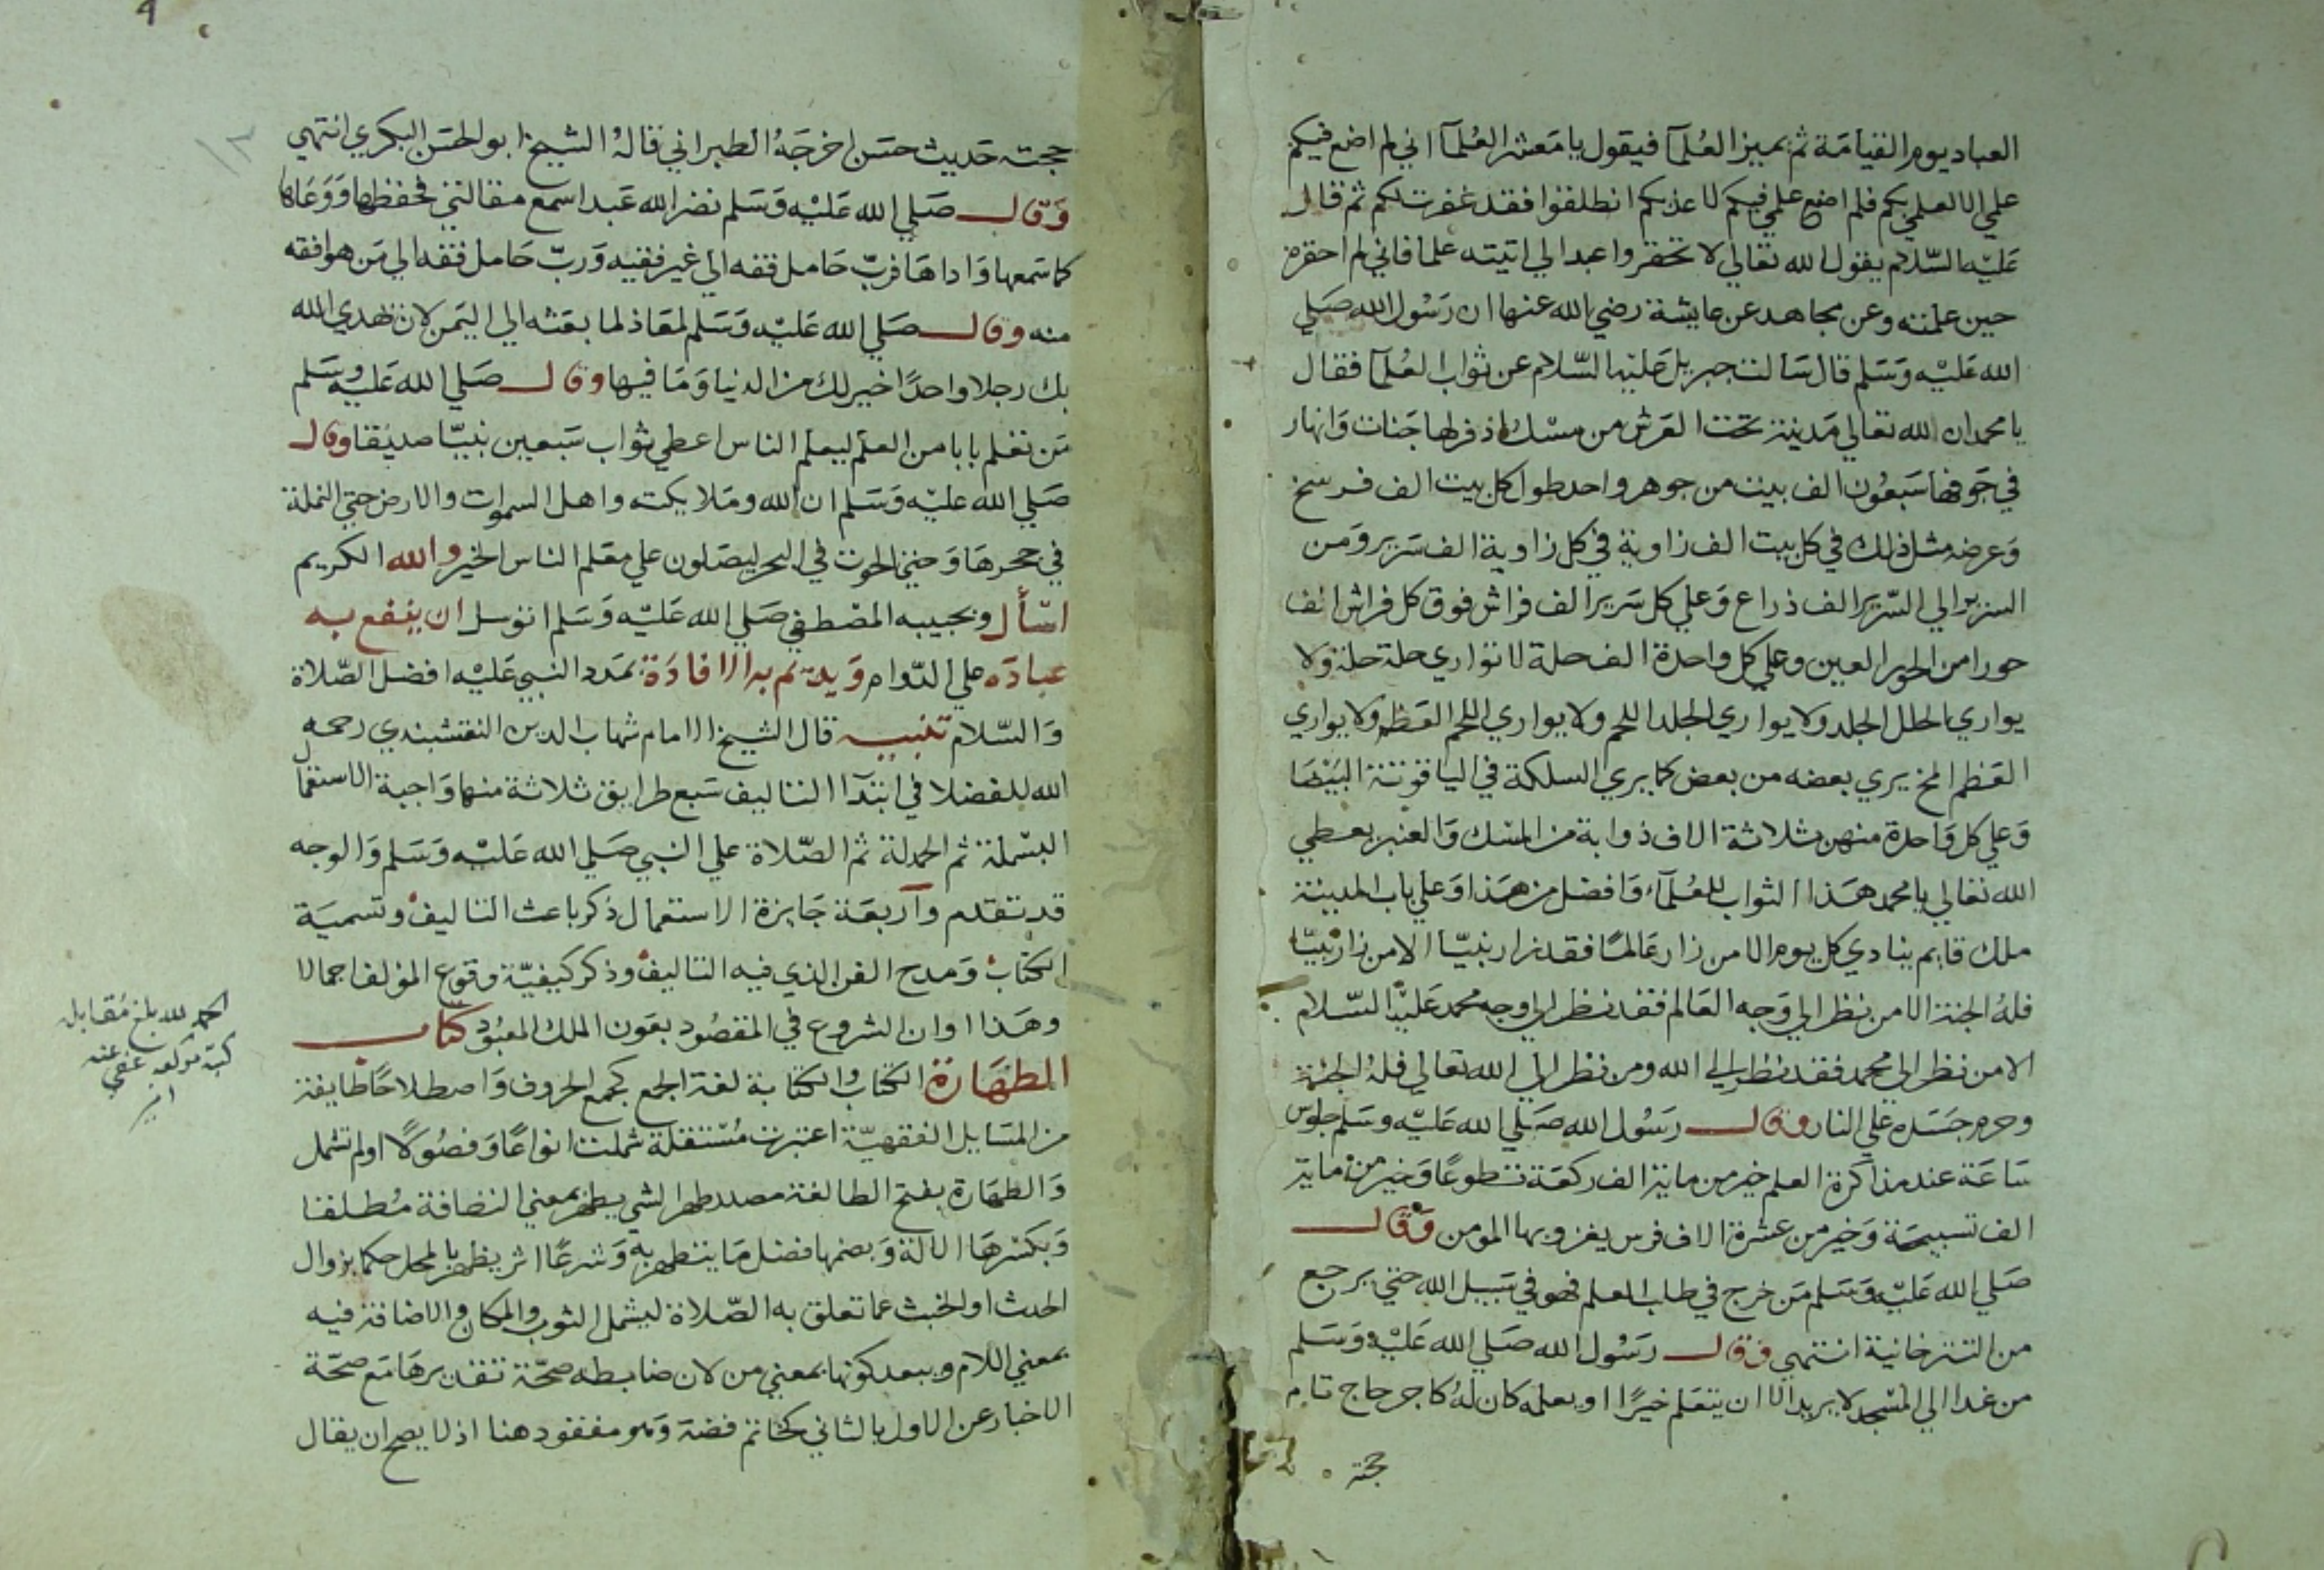 العباد يوم القيامة ثم يميز العلمآ فيقول يا معشر العلمآ اني لم اضع فيكم
علمي الا لعلمي بكم فلم اضع علمي فيكم لاعذبكم انطلقوا فقد غفرت لكم ثم قال
عليه السلام يقول الله تعالي لا تحقروا عبدا لي اتيته علما فاني لم احقره
حين علمته وعن مجاهد عن عايشة رضي الله عنها ان رسول الله صلي
الله عليه وسلم قال سالت جبريل عليه السلام عن ثواب العلمآ فقال
يا محمد ان لله تعالي مدينة تحت العرش من مسك اذفر لها جنات وانهار
في جوفها سبعون الف بيت من جوهر واحد طول كل بيت الف فرسخ
وعرضه مثل ذلك في كل بيت الف زاوية في كل زاوية الف سرير ومن
السرير الي السرير الف ذراع وعلي كل سرير الف فراش فوق كل فراش الف
حورا من الحور العين وعلي كل واحدة الف حلة لا تواري حلة حلة ولا
يواري الحلل الجلد ولا يواري الجلد اللحم ولا يواري اللحم العظم ولا يواري
العظم المخ يري بعضه من بعض كما يري السلكة في الياقوتة البيضا
وعلي كل واحدة منهن ثلاثة الاف ذوابة من المسك والعنبر يعطي
الله تعالي يا محمد هذا الثواب للعلمآء وافضل من هذا وعلي باب المدينة
ملك قايم ينادي كل يوم الا من زار عالما فقد زار نبيا الا من زار نبيا
فله الجنة الا من نظر الي وجه العالم فقد نظر الي وجه محمد عليه السلام
الا من نظر الي محمد فقد نظر الي الله ومن نظر الي الله تعالي فله الجنة
وحرم جسده علي النار وقال رسول الله صلي الله عليه وسلم جلوس
ساعة عند مذاكرة العلم خير من ماية الف ركعة تطوعا وخير من ماية
الف تسبيحة وخير من عشرة الاف فرس يغزو بها المومن وقال
صلي الله عليه وسلم من خرج في طلب العلم فهو في سبيل الله حتي يرجع
من التترخانية انتهي وقال رسول الله صلي الله عليه وسلم
من غدا الي المسجد لا يريد الا ان يتعلم خيرا او يعلمه كان له كاجر حاج تام
حجته
حجته حديث حسن اخرجه الطبراني قاله الشيخ ابو الحسن البكري انتهي
وقال صلي الله عليه وسلم نضر الله عبدا سمع مقالتي فحفظها ووعاها
كما سمعها واداها فرب حامل فقه الي غير فقيه ورب حامل فقه الي من هو افقه
منه وقال صلي الله عليه وسلم لمعاذ لما بعثه الي اليمن لان يهدي الله
بك رجلا واحدا خير لك من الدنيا وما فيها وقال صلي الله عليه وسلم
من تعلم بابا من العلم ليعلم الناس اعطي ثواب سبعين نبيا صديقا وقال
صلي الله عليه وسلم ان الله وملايكته واهل السموات والارض حتي النملة
في جحرها وحتي الحوت في البحر ليصلون علي معلم الناس الخير والله الكريم
اسأل وبحبيبه المصطفي صلي الله عليه وسلم اتوسل ان ينفع به
عباده علي الدوام ويديم به الافادة بمدد النبي عليه افضل الصلاة
والسلام تنبيه قال الشيخ الامام شهاب الدين النقشبندي رحمه
الله للفضلا في ابتدآ التاليف سبع طرايق ثلاثة منها واجبة الاستعمال
البسملة ثم الحمدلة ثم الصلاة علي النبي صلي الله عليه وسلم والوجه
قد تقدم وآربعة جايزة الاستعمال ذكر باعث التاليف وتسمية
الكتاب ومدح الفن الذي فيه التاليف وذكر كيفية وقوع المؤلف اجمالا
وهذا اوان الشروع في المقصود بعون الملك المعبود كتاب
الطهارة الكتاب والكتابة لغة الجمع كجمع الحروف واصطلاحا طايفة
من المسايل الفقهية اعتبرت مستقلة شملت انواعا وفصولا او لم تشمل
والطهارة بفتح الطا لغة مصدر طهر الشي يطهر بمعني النضافة مطلقا
وبكسرها الالة وبضمها فضل ما يتطهر به وشرعا اثر يظهر بالمحل حكما بزوال
الحدث او الخبث عما تعلق به الصلاة ليشمل الثوب والمكان والاضافة فيه
بمعني اللام ويبعد كونها بمعني من لان ضابطه صحة تقديرها مع صحة
الاخبار عن الاول بالثاني كخاتم فضة وهو مفقود هنا اذ لا يصح ان يقال
الحمد لله بلغ مقابلة
كتبه مولفه عفي عنه